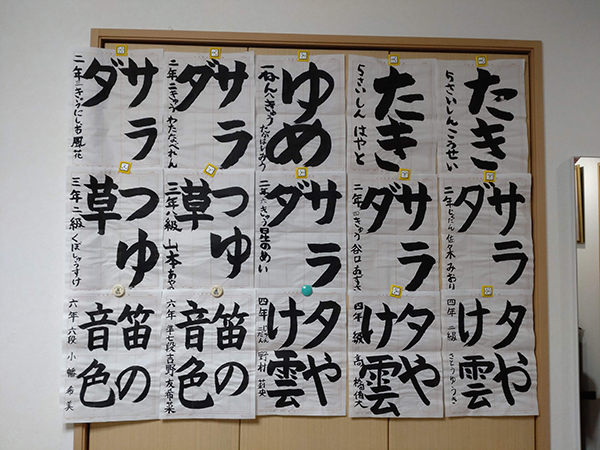 たき
5さいしんこうせい
たき
5さいしん はやと
ゆめ
一ねん八きゅう
サラ
ダ
二年 二きゅう わたなべれん
サラ
ダ
二年 きゅう にしお 風花
サラ
ダ
二年 しょだん 佐々木 みおり
サラ
ダ
二年 四きゅう 谷口 あずさ
サラ
ダ
二年 六きゅう 星の めい
つゆ
草
三年 八級 山本 あや
つゆ
草
三年 二級 くぼしゅうすけ
夕や
け雲
四年 二級 さとう
夕や
け雲
四年 級 高橋侑大
夕や
け雲
四年 二だん 野村 莉央
笛の
音色
六年 準七段 吉野 友希菜
笛の
音色
六年 六段 小幡 希美